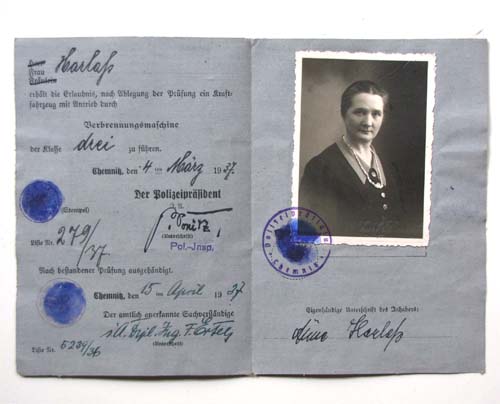 Herr
Frau Harlaß
Fräulein
erhält die Erlaubnis, nach Ablegung der Prüfung ein Kraft-
fahrzeug mit Antrieb durch
Verbrennungsmaschine
der Klasse drei zu führen.
Chemnitz, den 4 ten März 1937.
Der Polizeipräsident
(Stempel)
(Unterschrift)
Pol.-Insp.
Liste Nr. 279/37
Nach bestandener Prüfung ausgehändigt.
Chemnitz, den 15 ten April 1937
Der amtlich anerkannte Sachverständige
i.A. Dipl. Ing. F.
(Unterschrift)
Liste Nr. 5234/36
Polizeipräsidium
Chemnitz
Eigenhändige Unterschrift des Inhabers:
Harlaß